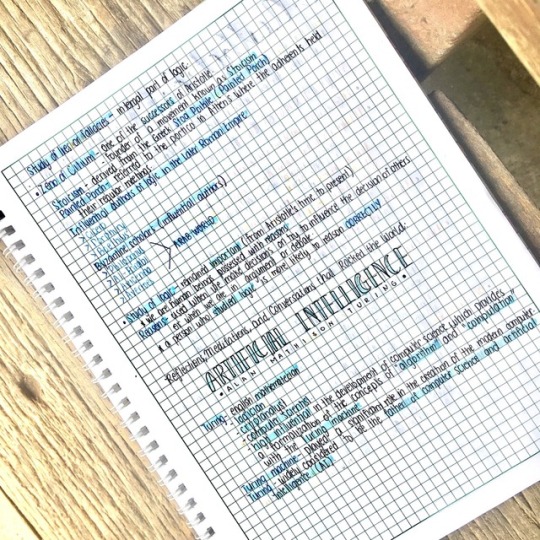 Study of legor fallacies - intergal part of logic
• Zeno of Citium - one of the successors of Aristotle
- founder of a movement known as Stoicism
Stoicism - derived from the Greek Stoa Poikile (Painted Porch)
Painted Porch - referred to the portico in Athens where the adherents held
their regular meetings
Influential authors of logic in the later Roman Empire
Byzantine scholars (influential authors)
Arab world
• Study of logic - remained important (from Aristotle's time to present)
* we are human beings possessed with reason
Reasons - used when we make decisions or try to influence the decision of others
or when we are in argument or debate
* a person who studied logic is more likely to reason correctly
Reflecting, Meditations, and Conversations that Rocked the World:
ARTIFICIAL INTELLIGENCE
• ALAN MATHISON TURING •
Turing - english mathematician
- logician
- cryptanalyst
- computer scientist
- high influential in the development of computer science which provides
a formalization of the concepts of "algorithm" and "computation"
with the turing machine
Turing machine - played a significant role in the creation of the modern computer
Turing - widely considered to be the father of computer science and artificial
intelligence (AI)